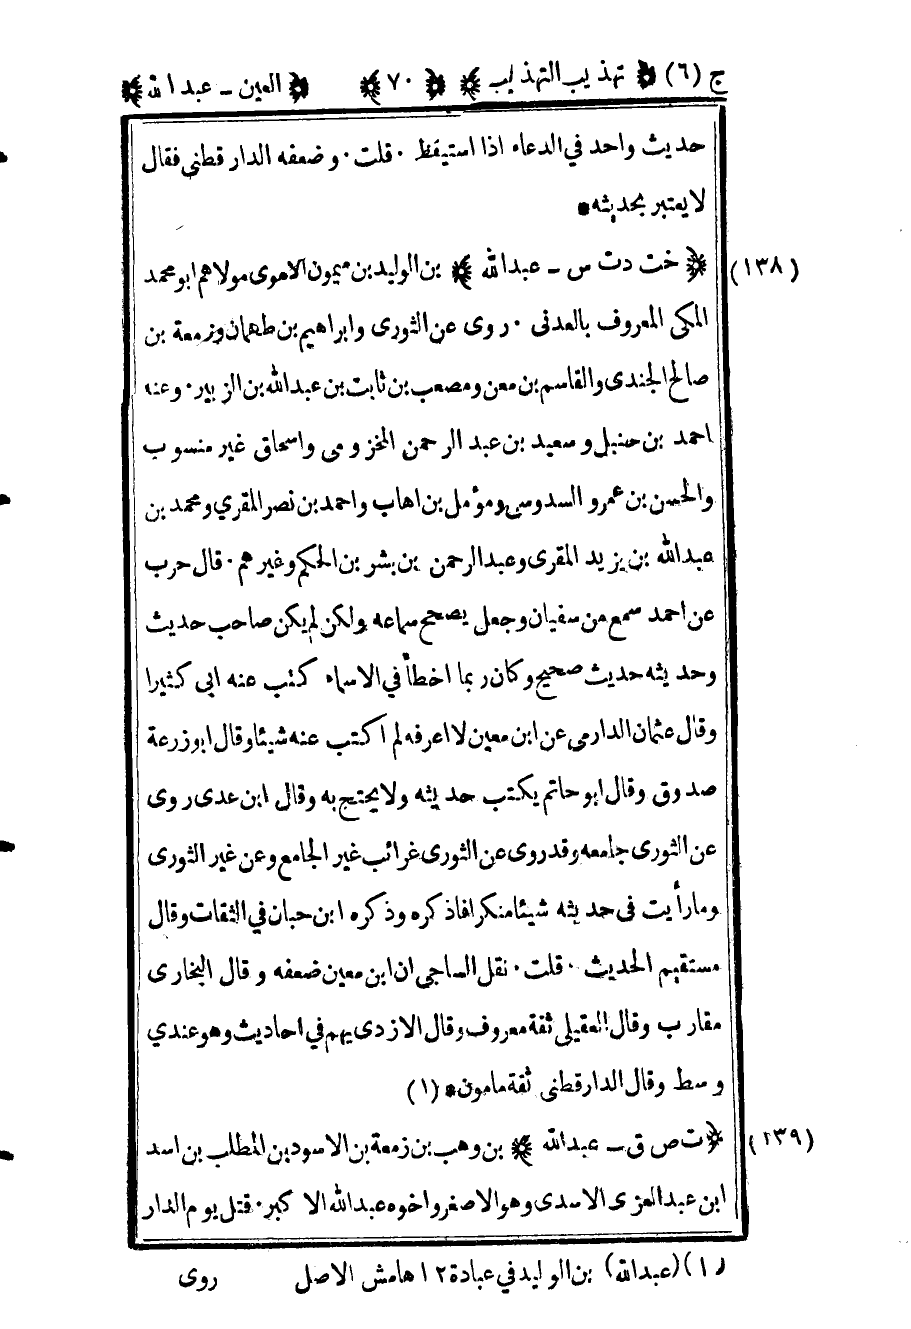 ج (٦) ﴿ تهذيب التهذيب ﴾ ﴿ ٧٠ ﴾ ﴿ العين ـ عبد الله ﴾
حديث واحد في الدعاء اذا استيقظ ٠ قلت ٠ وضعفه الدارقطنى فقال
لا يعتبر بحديثه *
(١٣٨) ﴿ خت د ت س ـ عبد الله ﴾ بن الوليد بن ميمون الاموى مولاهم ابو محمد
المكى المعروف بالعدنى ٠ روى عن الثورى وابراهيم بن طهمان وزمعة بن
صالح الجندى والقاسم بن معن ومصعب بن ثابت بن عبد الله بن الزبير ٠ وعنه
احمد بن حنبل وسعيد بن عبد الرحمن المخزومى واسحاق غير منسوب
والحسن بن عمرو السدوسى ومؤمل بن اهاب واحمد بن نصر المقري ومحمد بن
عبد الله بن يزيد المقرى وعبد الرحمن بن بشر بن الحكم وغيرهم ٠ قال حرب
عن احمد سمع من سفيان وجعل يصحح سماعه ولكن لم يكن صاحب حديث
وحديثه حديث صحيح وكان ربما اخطأ في الاسماء كتب عنه ابى كثيرا
وقال عثمان الدارمى عن ابن معين لا اعرفه لم اكتب عنه شيئا وقال ابو زرعة
صدوق وقال ابو حاتم يكتب حديثه ولا يحتج به وقال ابن عدى روى
عن الثورى جامعه وقد روى عن الثورى غرائب غير الجامع وعن غير الثورى
وما رأيت فى حديثه شيئا منكرا فاذكره وذكره ابن حبان في الثقات وقال
مستقيم الحديث ٠ قلت ٠ نقل الساجى ان ابن معين ضعفه وقال البخارى
مقارب وقال العقيلى ثقة معروف وقال الازدى يهم في احاديث وهو عندي
وسط وقال الدارقطنى ثقة مامون * (١)
(١٣٩) ﴿ ت ص ق ـ عبد الله ﴾ بن وهب بن زمعة بن الاسود بن المطلب بن اسد
ابن عبد العزى الاسدى وهو الاصغر واخوه عبد الله الاكبر ٠ قتل يوم الدار
(١) (عبد الله) بن الوليد في عبادة ١٢ هامش الاصل روى